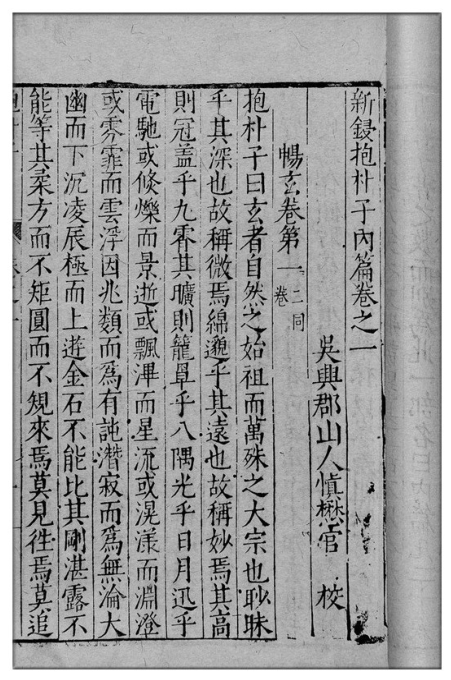 新鋟抱朴子內篇卷之一
吳興郡山人慎懋官 校
暢玄卷第一 二同卷
抱朴子曰玄者自然之始祖而萬殊之大宗也眇昧
乎其深也故稱微焉綿邈乎其遠也故稱妙焉其高
則冠盖乎九霄其曠則籠罩乎八隅光乎日月迅乎
電馳或倐爍而景逝或飄滭而星流或滉漾而淵澄
或雰霏而雲浮因兆類而為有託潛寂而為無淪大
幽而下沉凌辰極而上遊金石不能比其剛湛露不
能等其柔方而不矩圓而不規來焉莫見往焉莫追